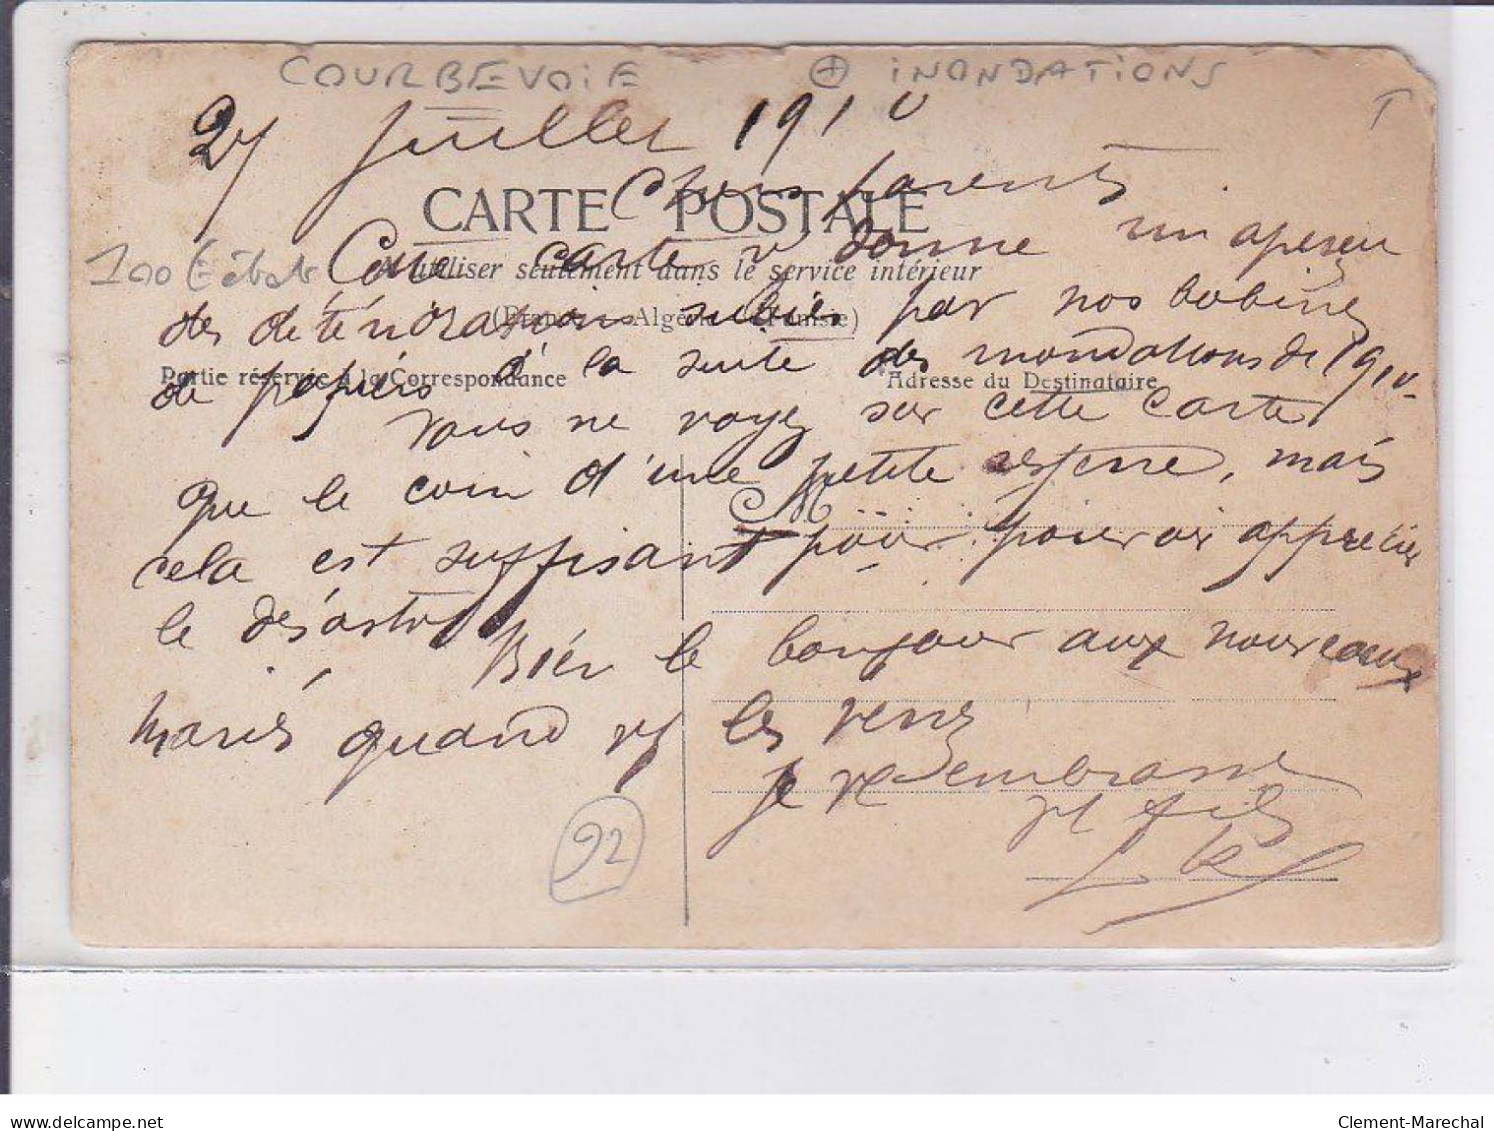 COURBEVOIE + INONDATIONS
T
27 Juillet 1910
Chers parents
CARTE POSTALE
Cette carte v donne un aperçu
100 € état
A utiliser seulement dans le service intérieur
des détériorations subies par nos bobines
(France - Algérie Tunisie)
de papiers à la suite des inondations de 1910.
Partie réservée à la Correspondance
Adresse du Destinataire
Vous ne voyez sur cette carte
que le coin d'une petite , mais
cela est suffisant pour pouvoir apprécier
le désastre
Bien le bonjour aux nouveaux
mariés quand vs les verrez
Je vs embrasse
vt fils
92
delcampe.net
Clement-Marechal